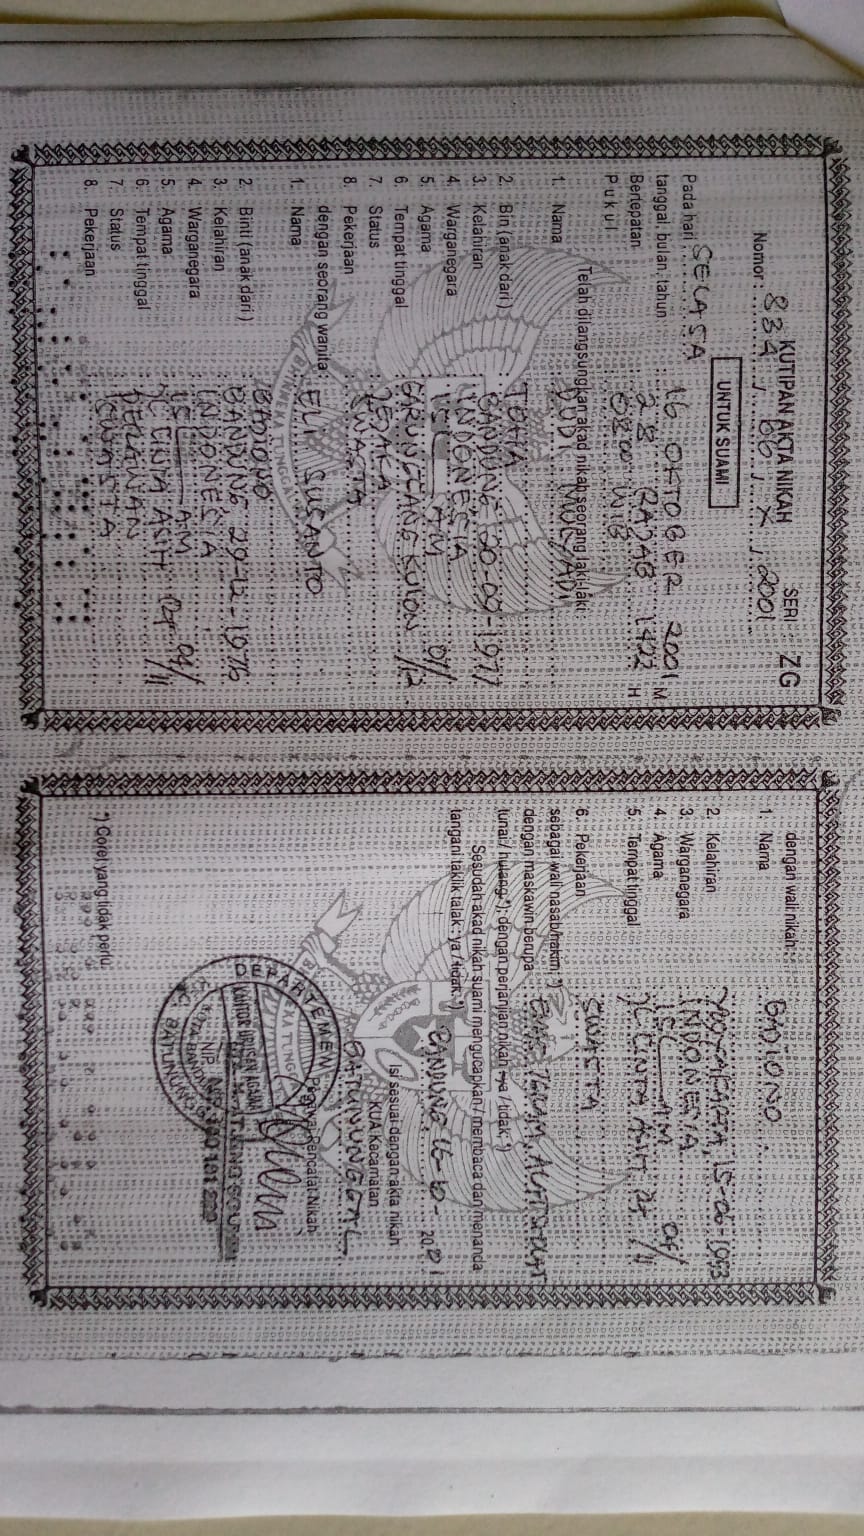 KUTIPAN AKTA NIKAH SERI ZG
Nomor: 834 / 66 / X / 2001
UNTUK SUAMI
Pada hari SELASA
tanggal, bulan, tahun : 16 OKTOBER 2001 M
Bertepatan : 28 RAJAB 1422 H
Pukul : 08.00 WIB
Telah dilangsungkan akad nikah seorang laki-laki:
1. Nama : DUDI MULYADI
2. Bin (anak dari) : TOHA
3. Kelahiran : BANDUNG, 20-09-1977
4. Warganegara : INDONESIA
5. Agama : ISLAM
6. Tempat tinggal : KULON 01/12
7. Status : JEJAKA
8. Pekerjaan : SWASTA
dengan seorang wanita:
1. Nama : ELI SUSANTO
2. Binti (anak dari) : BADIONO
3. Kelahiran : BANDUNG, 29-12-1976
4. Warganegara : INDONESIA
5. Agama : ISLAM
6. Tempat tinggal : JL CINTA ASIH RT 04/11
7. Status : PERAWAN
8. Pekerjaan : SWASTA
dengan wali nikah:
1. Nama : BADIONO
2. Kelahiran : YOGYAKARTA, 15-06-1953
3. Warganegara : INDONESIA
4. Agama : ISLAM
5. Tempat tinggal : JL CINTA ASIH RT 04/11
6. Pekerjaan : SWASTA
sebagai wali nasab/hakim *)
dengan maskawin berupa : EMAS GRAM, ALAT SHOLAT
tunai / hutang *); dengan perjanjian nikah ya / tidak *)
Sesudah akad nikah suami mengucapkan / membaca dan menanda
tangani taklik talak : ya / tidak *)
BANDUNG 16-10- 2001
Isi sesuai dengan akta nikah
KUA Kecamatan
BATUNUNGGAL
Pegawai Pencatat Nikah
DEPARTEMEN
KANTOR URUSAN AGAMA
NIP.
*) Coret yang tidak perlu.